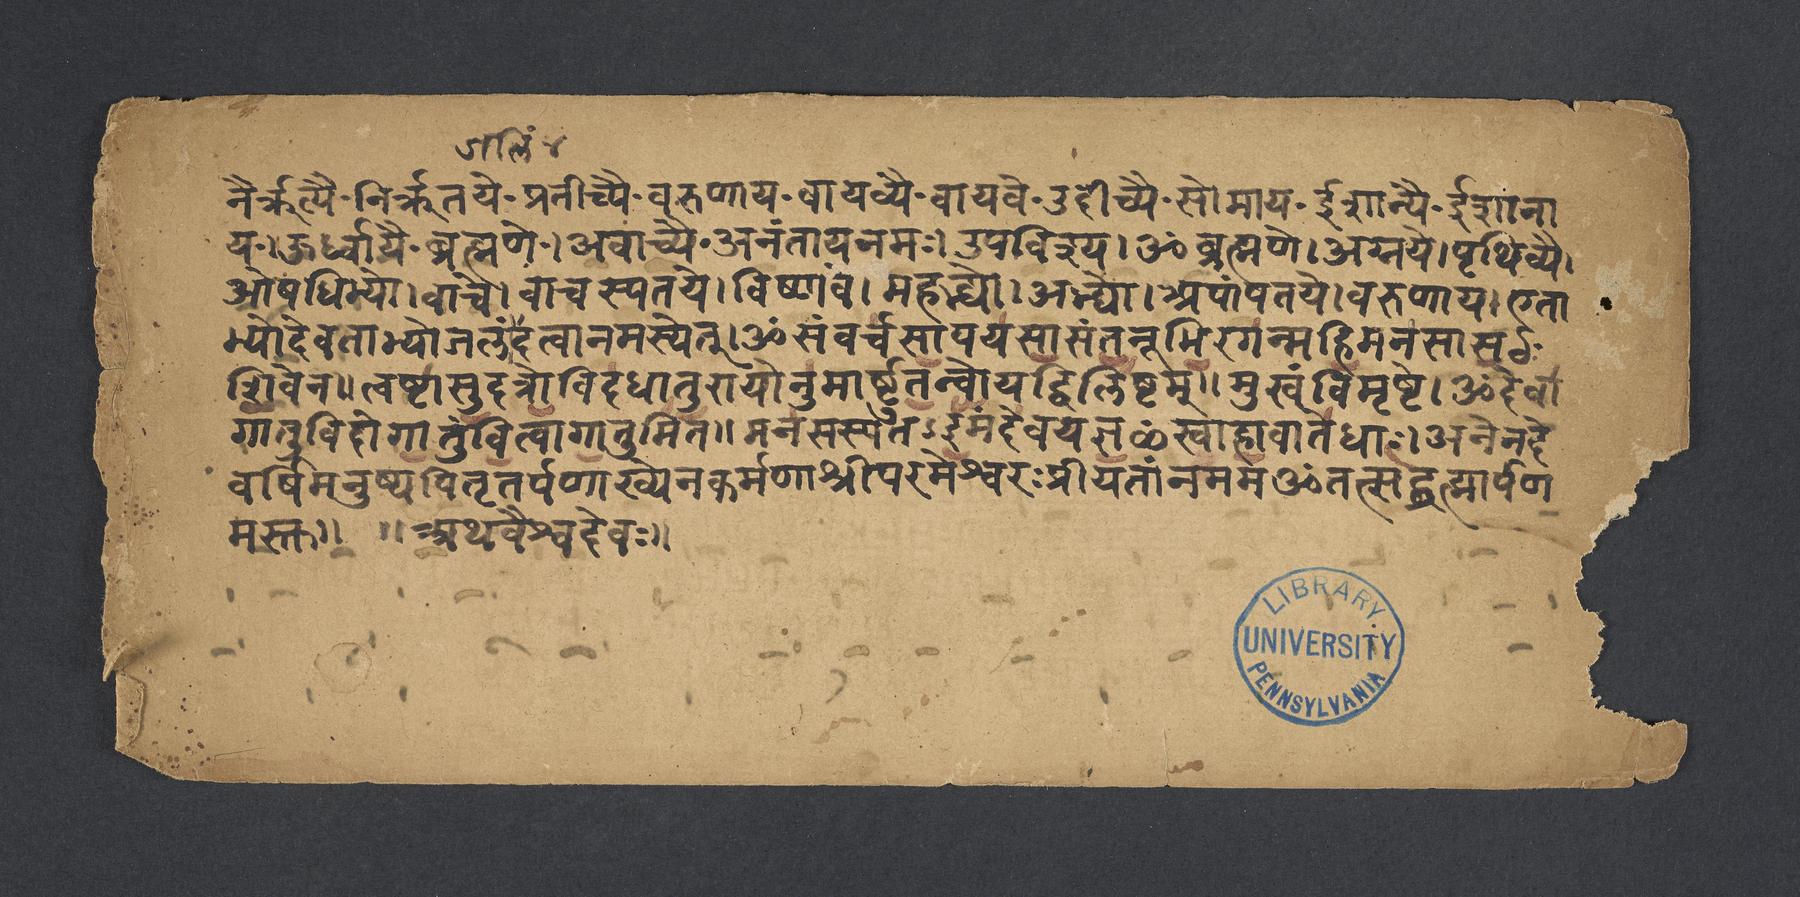 नैर्ऋत्यै॰निर्ऋतये॰प्रतीच्यै॰वरुणाय॰वायव्यै॰वायवे॰उदीच्यै॰सोमाय॰ईशान्यै॰ईशाना
य॰।ऊर्ध्वायै॰ब्रह्मणे॰।अवाच्यै॰अनंतायनमः। उपविश्य।ॐ ब्रह्मणे।अग्नये।पृथिव्यै।
ओषधिभ्यो।वाचे।वाचस्पतये।विष्णवे। महद्भ्यो।अद्भ्यो।अपांपतये।वरुणाय।एता
भ्योदेवताभ्योजलंदत्वानमस्येत्।ॐ संवर्चसापयसासंतनूभिरगन्महिमनसास
शिवेन॥ त्वष्टासुदत्रोविदधातुरायोनुमार्ष्टुतन्वोयद्विलिष्टम्॥ मुखंविमृष्टे।ॐदेवा
गातुविदोगातुंवित्वागातुमित॥ मनसस्पतऽइमंदेवयज्ञꣳस्वाहावातेधाः।अनेनदे
वर्षिमनुष्यपितृतर्पणाख्येनकर्मणाश्रीपरमेश्वरःप्रीयतांनममॐतत्सद्ब्रह्मार्पण
मस्तु॥ ॥अथवैश्वदेवः॥
LIBRARY
UNIVERSITY
PENNSYLVANIA